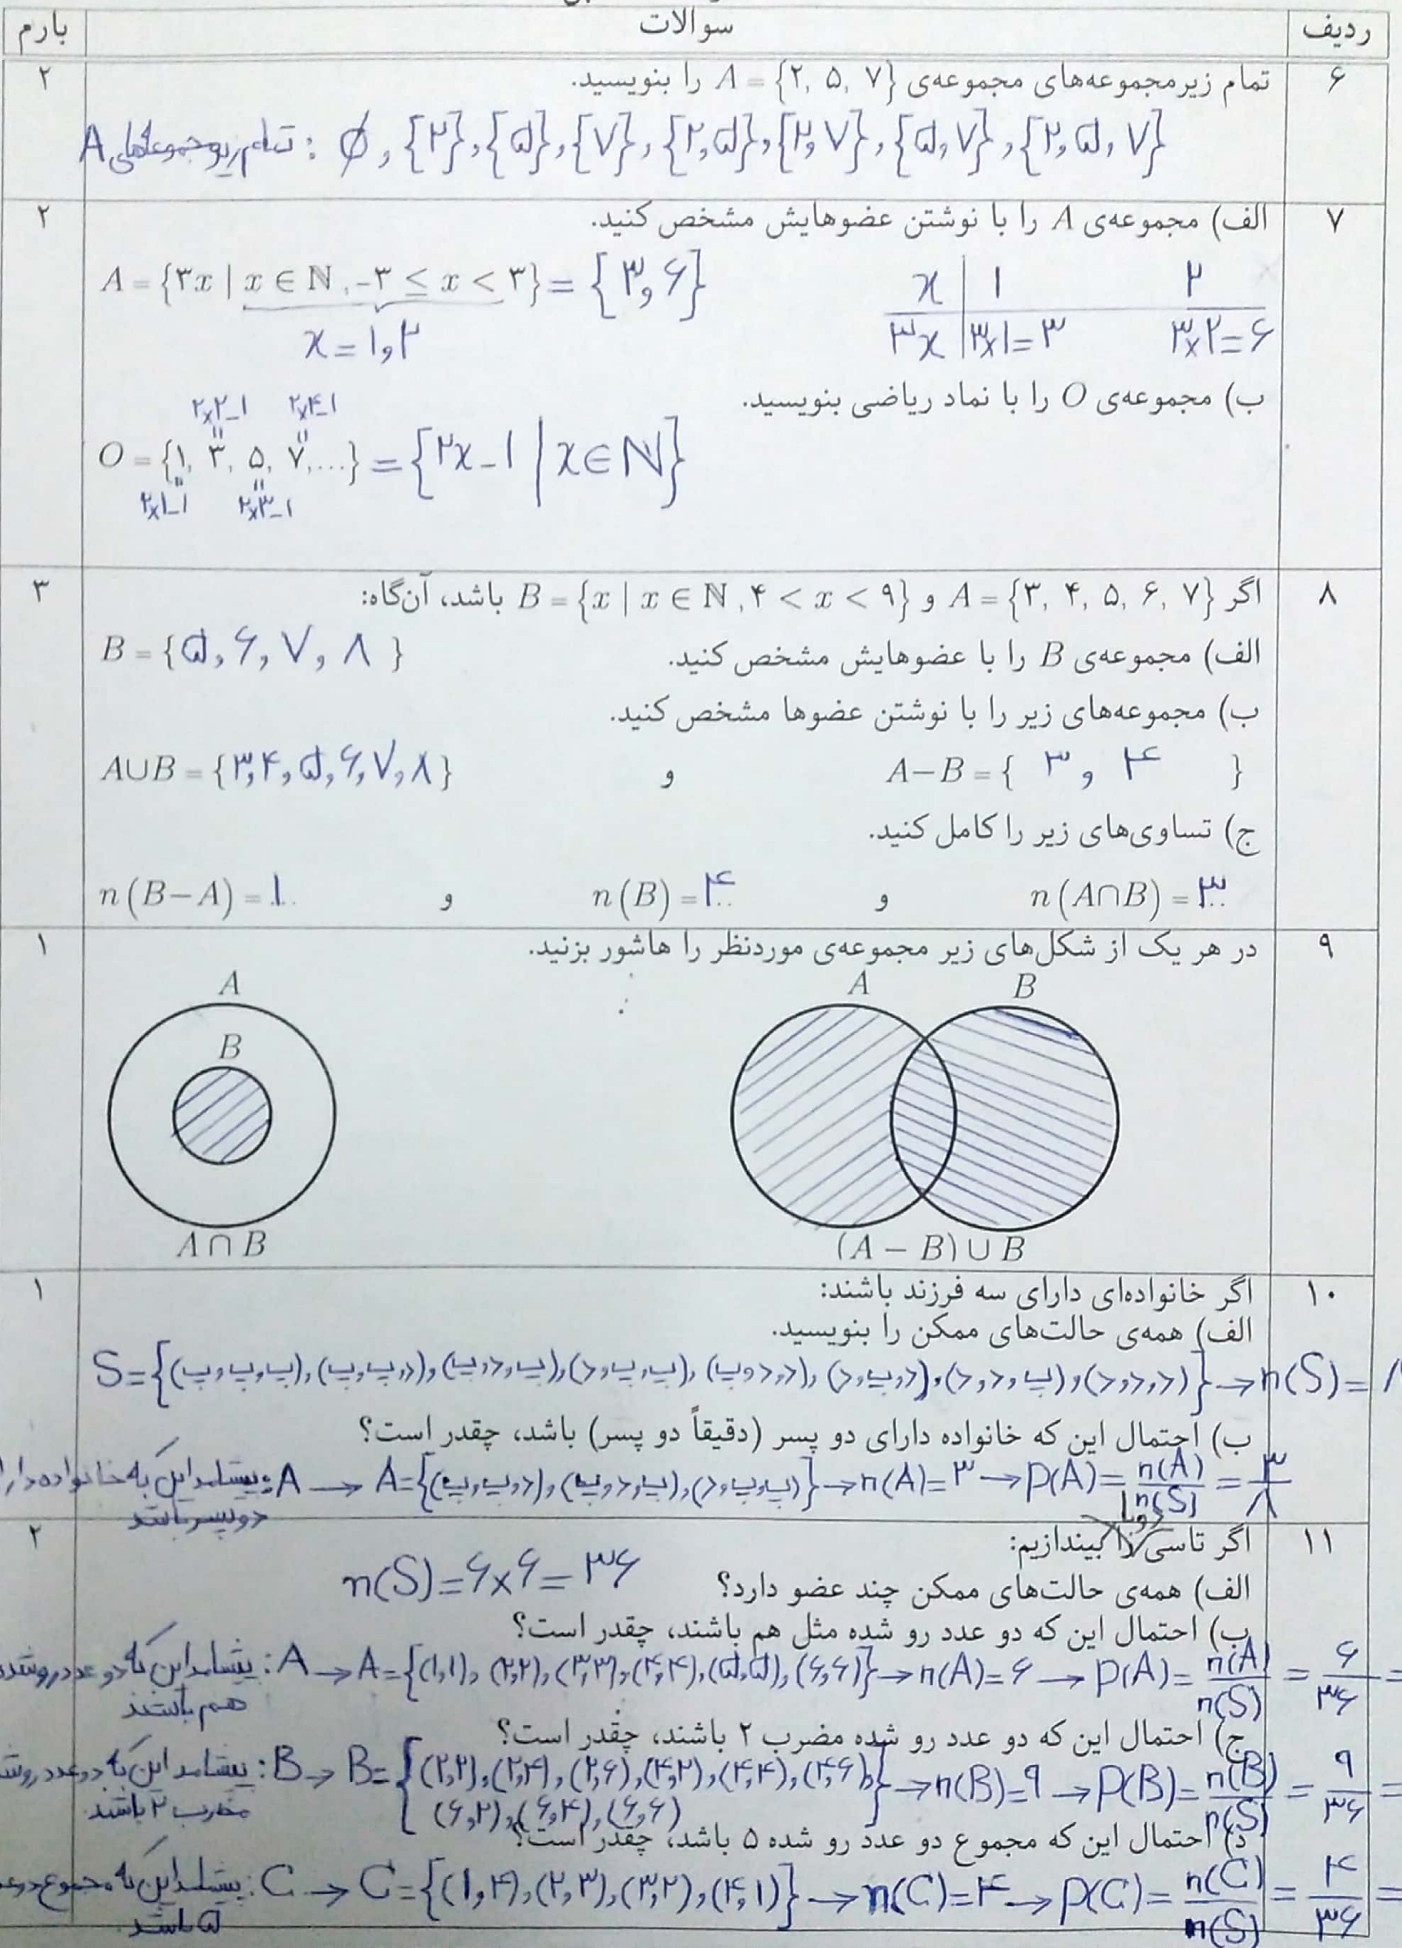 ردیف سوالات بارم
۶ تمام زیرمجموعه‌های مجموعه‌ی A = {۲, ۵, ۷} را بنویسید. ۲
تمام زیرمجموعه‌های A : ∅, {۲}, {۵}, {۷}, {۲,۵}, {۲,۷}, {۵,۷}, {۲,۵,۷}
۷ الف) مجموعه‌ی A را با نوشتن عضوهایش مشخص کنید. ۲
A = {۳x | x ∈ ℕ, −۳ ≤ x < ۳} = {۳,۶}
x = ۱,۲
x | ۱ ۲
۳x | ۳×۱=۳ ۳×۲=۶
ب) مجموعه‌ی O را با نماد ریاضی بنویسید.
۲×۲−۱ ۲×۴−۱
O = {۱, ۳, ۵, ۷,...} = {۲x−۱ | x∈ℕ}
۲×۱−۱ ۲×۳−۱
۸ اگر A = {۳, ۴, ۵, ۶, ۷} و B = {x | x ∈ ℕ, ۴ < x < ۹} باشد، آن‌گاه: ۳
الف) مجموعه‌ی B را با عضوهایش مشخص کنید. B = {۵,۶,۷,۸}
ب) مجموعه‌های زیر را با نوشتن عضوها مشخص کنید.
A−B = { ۳ , ۴ } و A∪B = {۳,۴,۵,۶,۷,۸}
ج) تساوی‌های زیر را کامل کنید.
n(A∩B) = ۳ و n(B) = ۴ و n(B−A) = ۱
۹ در هر یک از شکل‌های زیر مجموعه‌ی موردنظر را هاشور بزنید. ۱
A B
A
B
(A − B) ∪ B
A ∩ B
۱۰ اگر خانواده‌ای دارای سه فرزند باشند: ۱
الف) همه‌ی حالت‌های ممکن را بنویسید.
S={(پ,پ,پ),(پ,پ,د),(پ,د,پ),(د,پ,پ),(پ,د,د),(د,پ,د),(د,د,پ),(د,د,د)} → n(S)= ۸
ب) احتمال این که خانواده دارای دو پسر (دقیقاً دو پسر) باشد، چقدر است؟
پیشامد این که خانواده دارا
دو پسر باشد : A → A={(پ,پ,د),(پ,د,پ),(د,پ,پ)} → n(A)=۳ → P(A)= n(A)/n(S) = ۳/۸
۱۱ اگر تاسی را دوبار بیندازیم: ۲
الف) همه‌ی حالت‌های ممکن چند عضو دارد؟ n(S)=۶×۶=۳۶
ب) احتمال این که دو عدد رو شده مثل هم باشند، چقدر است؟
پیشامد این که دو عدد رو شده
هم باشند : A → A={(۱,۱),(۲,۲),(۳,۳),(۴,۴),(۵,۵),(۶,۶)} → n(A)=۶ → P(A)= n(A)/n(S) = ۶/۳۶ =
ج) احتمال این که دو عدد رو شده مضرب ۲ باشند، چقدر است؟
پیشامد این که دو عدد رو
مضرب ۲ باشند. : B → B={(۲,۲),(۲,۴),(۲,۶),(۴,۲),(۴,۴),(۴,۶),
(۶,۲),(۶,۴),(۶,۶)} → n(B)=۹ → P(B)= n(B)/n(S) = ۹/۳۶ =
د) احتمال این که مجموع دو عدد رو شده ۵ باشد، چقدر است؟
پیشامد این که مجموع دو
۵ باشد. : C → C={(۱,۴),(۲,۳),(۳,۲),(۴,۱)} → n(C)=۴ → P(C)= n(C)/n(S) = ۴/۳۶ =